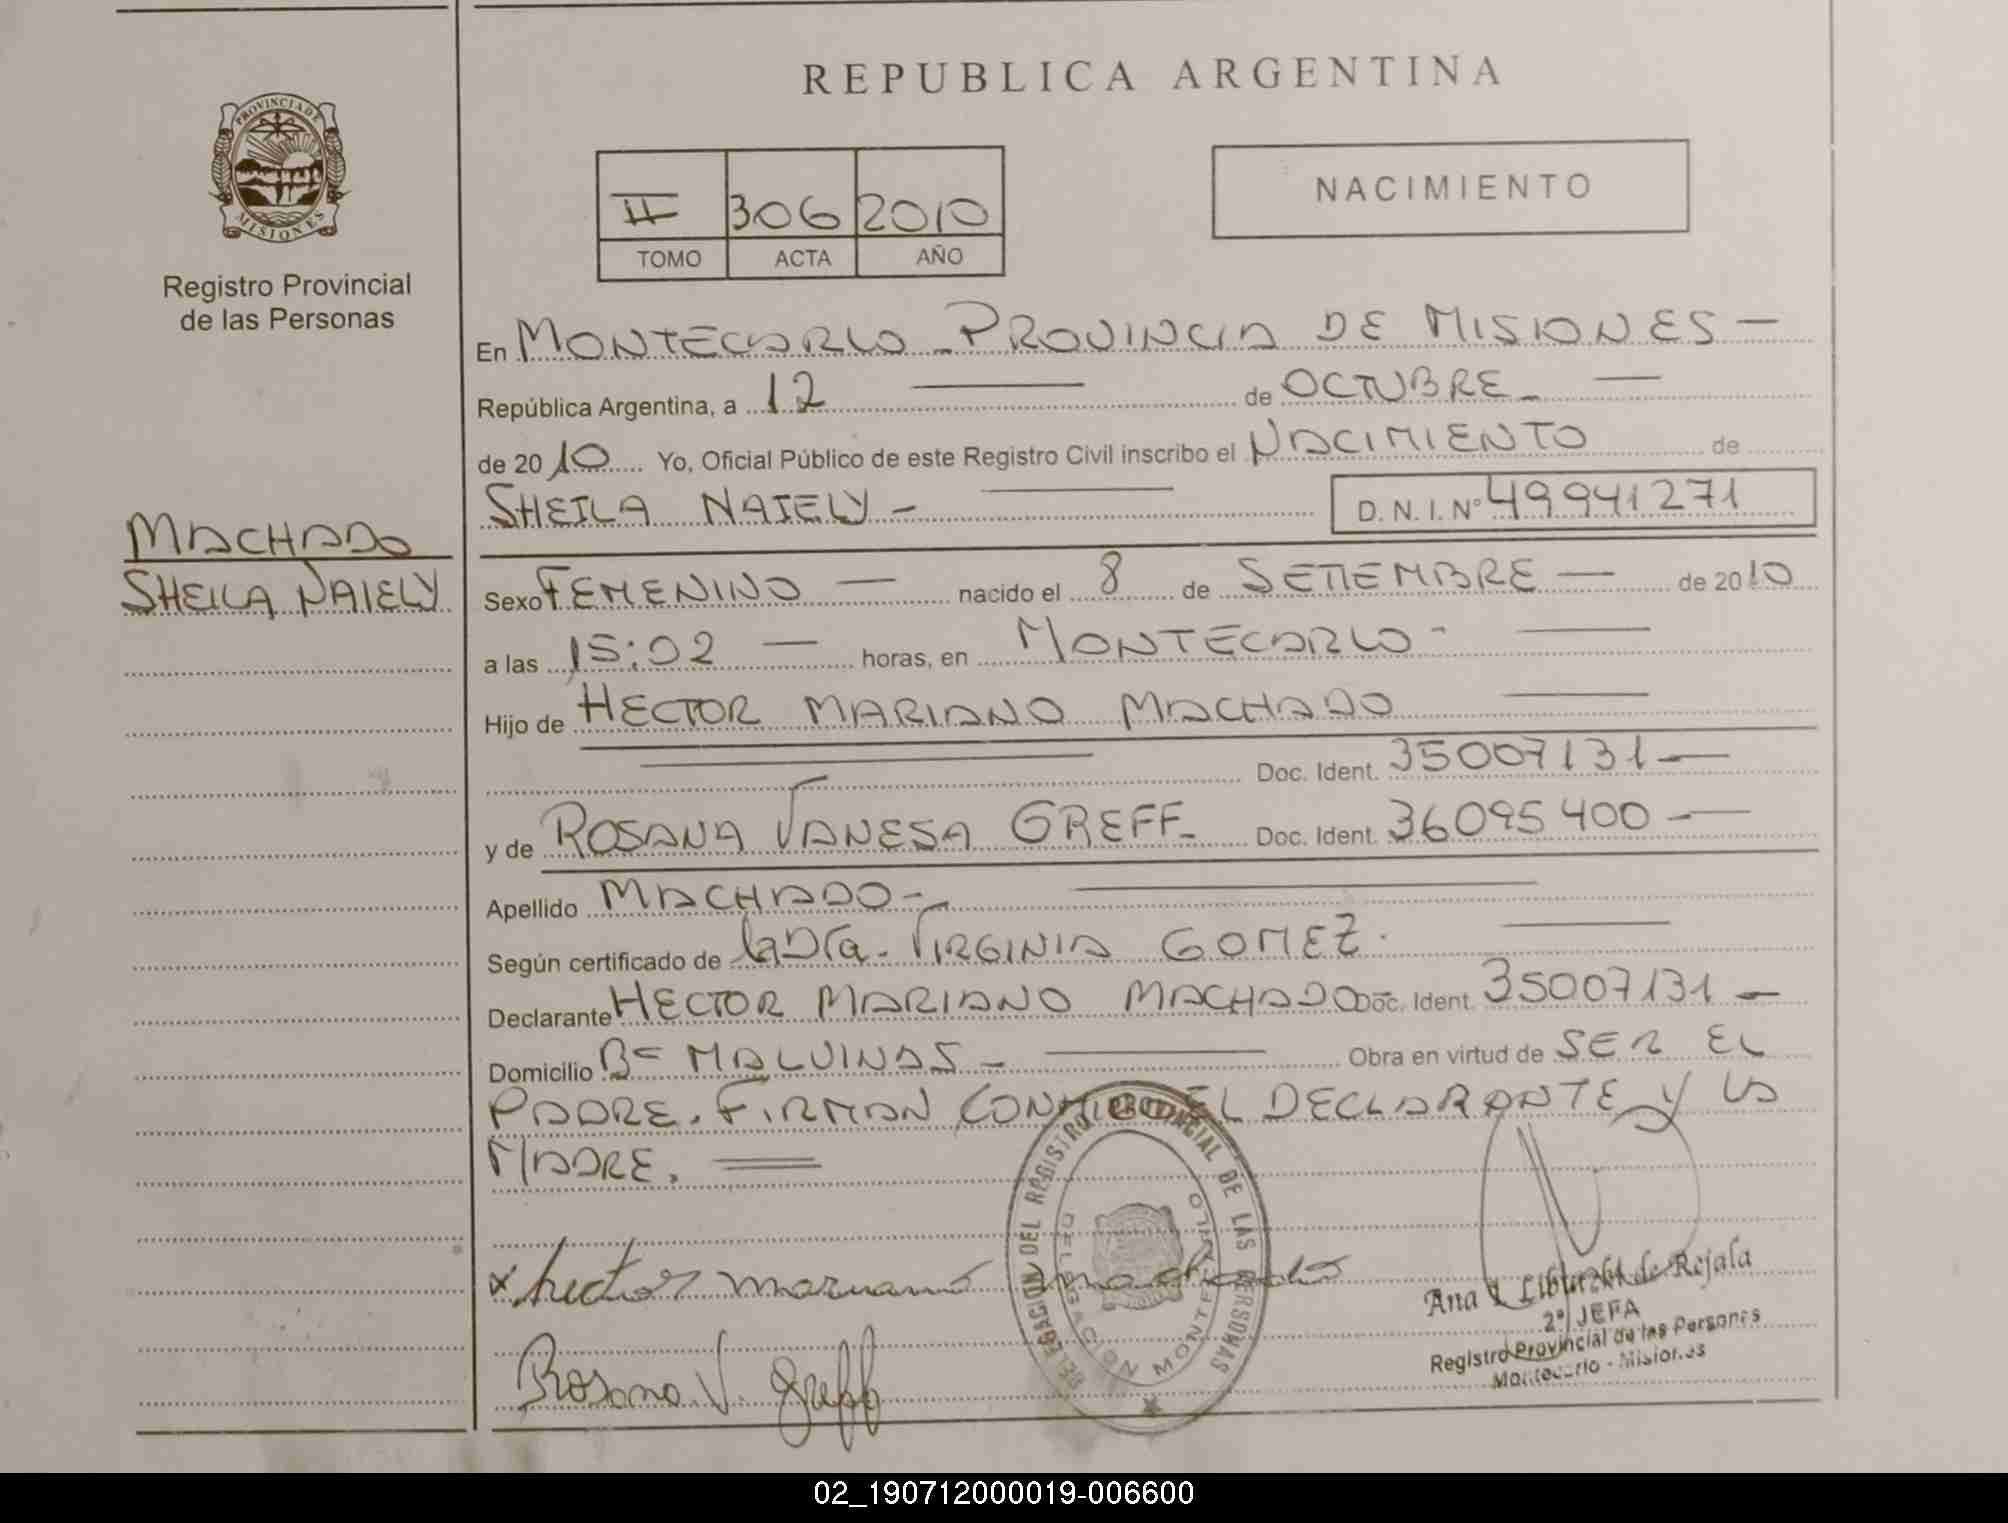 REPUBLICA ARGENTINA
PROVINCIA DE
MISIONES
Registro Provincial
de las Personas
II 306 2010
TOMO ACTA AÑO
NACIMIENTO
En MONTECARLO - PROVINCIA DE MISIONES -
República Argentina, a 12 de OCTUBRE -
de 2010 Yo, Oficial Público de este Registro Civil inscribo el NACIMIENTO de
SHEILA NAIELY - D.N.I. Nº 49941271
MACHADO
SHEILA NAIELY
Sexo FEMENINO — nacido el 8 de SETIEMBRE — de 2010
a las 15:02 — horas, en MONTECARLO -
Hijo de HECTOR MARIANO MACHADO
Doc. Ident. 35007131 —
y de ROSANA VANESA GREFF - Doc. Ident. 36095400 —
Apellido MACHADO -
Según certificado de la Dra. VIRGINIA GOMEZ.
Declarante HECTOR MARIANO MACHADO Doc. Ident. 35007131 —
Domicilio Bº MALVINAS - Obra en virtud de SER EL
PADRE. FIRMAN CONMIGO EL DECLARANTE Y LA
MADRE.
DELEGACION DEL REGISTRO PROVINCIAL DE LAS PERSONAS
DELEGACION MONTECARLO
x hector mariano machado
Rosana V. Greff
Ana de Rejala
2º JEFA
Registro Provincial de las Personas
Montecarlo - Misiones
02_190712000019-006600